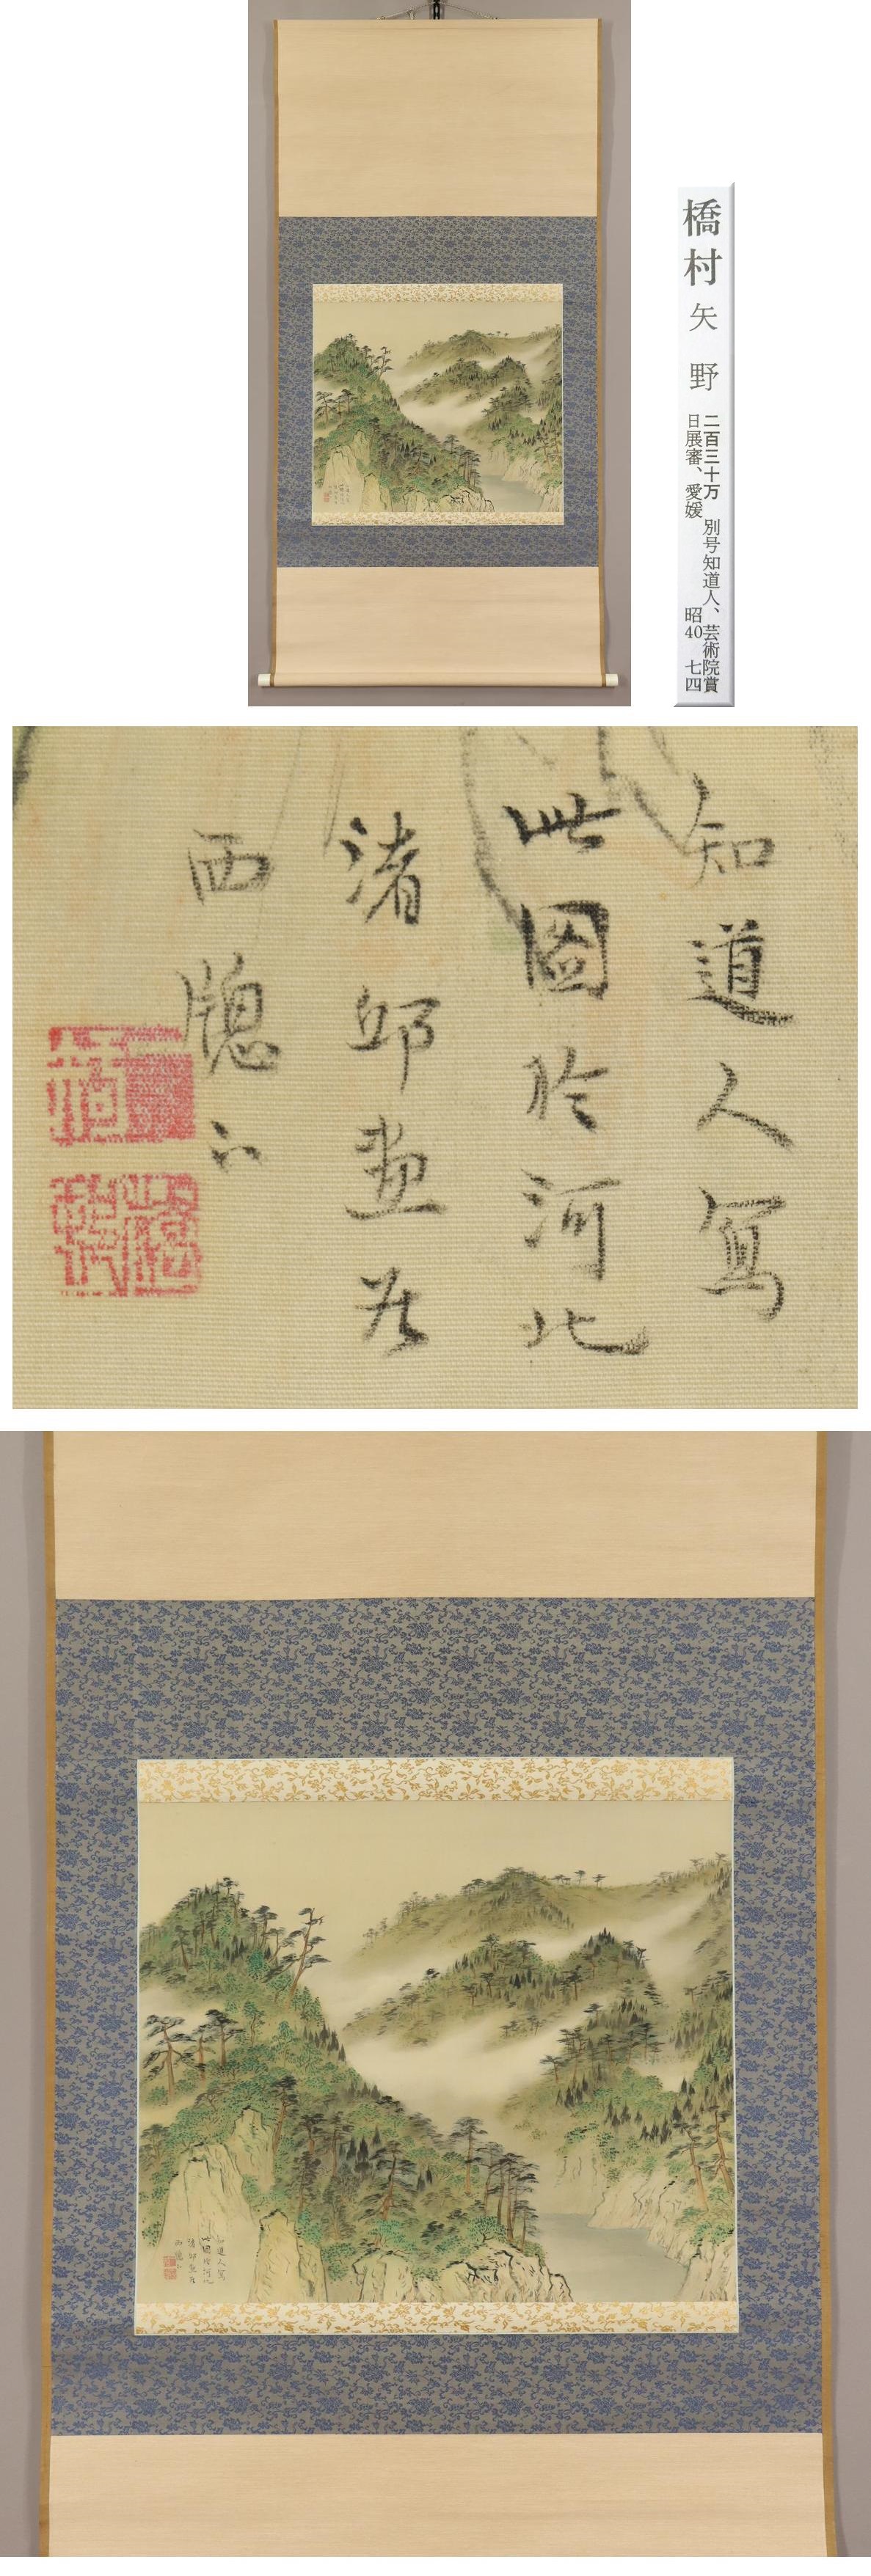 橋村 矢野
二百三十万 別号知道人、芸術院賞
日展審、愛媛 昭40 七四
知道人写
此図於河北
渚邱画居
西窓下